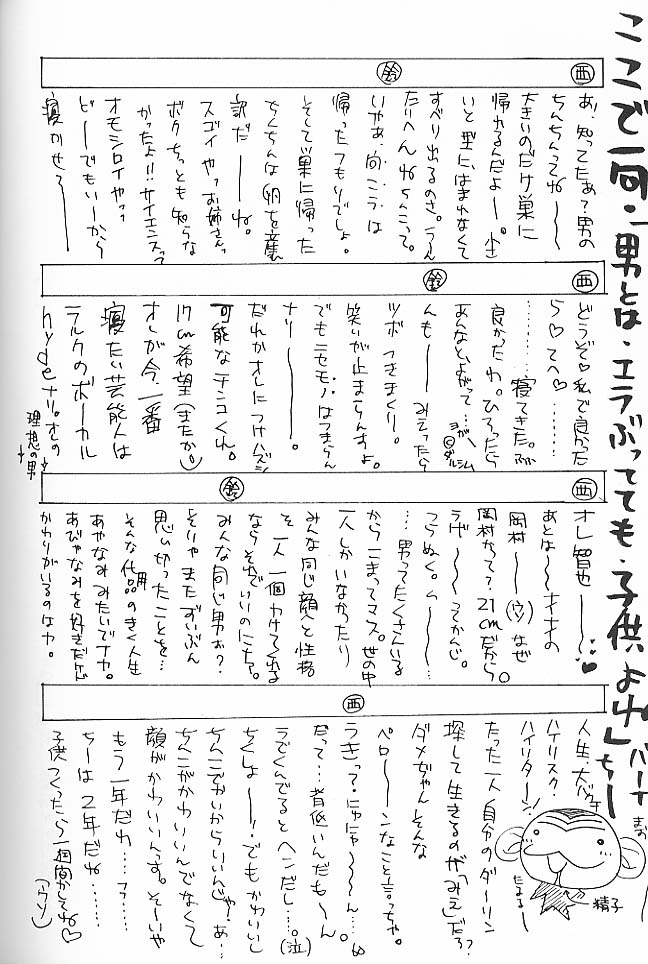 ここで一句・「男とは・エラぶってても・子供よね」バーナちー
西
あ、知ってたぁ？男の
ちんちんってね〜〜
大きいのだけ巣に
帰れるんだよー。小さ
いと型にはまれなくて
すべり出るのさ。うーん
たいへんねちんこって。
鈴
いやぁ、向こうは
帰ったつもりでしょ。
そして巣に帰った
ちくちんは卵を産む
訳だーね。
スゴイやっお姉さんっ
ボクちっとも知らな
かったよ!!サイエンスって
オモシロイやっっ
どーでもいーから
寝かせろ――
西
どうぞ♡私で良かった
ら♡てへ♡……
………寝てきた。ぶぶ
良かったわ。ひろったら
あんなによがって…ヨガ〜
©ダルシム
鈴
んも――みえったら
ツボつきまくり。
笑いが止まらんすよ。
でもニセモノはつまらん
ナリ――。
だれかオレにつけハズシ
可能なチンコくれ。
17cm希望(またか。)
オレが今、一番
寝たい芸能人は
ラルクのボーカル
hydeナリ。オの
理想の男
西
オレ智也――…♥
あとは〜ナイナイの
岡村――(ウソ)なぜ
岡村かって？21cmだから。
ラヴ〜〜ってかんじ。
つらぬく。う〜〜…
鈴
…男ってたくさんいる
からこまってマス。世の中
一人しかいなかったり
みんな同じ顔と性格
を一人一個わけてくれる
ならそれでいいのにナー。
みんな同じ男ぉ？
そいやまたずいぶん
思い切ったことを…
そんな代用品のきく人生
あやなみみたいでナカ。
あびゃなみを好きだけど
かわりがいるのはカ。
西
人生、大バクチ
ハイリスク・
ハイリターン！
たった一人自分のダーリン
探して生きるのが「みえ」だろ？
ダメぢゃんそんな
ペロ――ンなこと言っちゃ。
うきっって・にゅにゃ〜〜〜ん…
だって…背低いんだも〜ん。
ラでくんでるとヘンだし…。(泣)
ちくしょー！でもかわいい
ちんこでかいからいいじゃ！あ…
ちんこがかわいいんでなくて
顔がかわいいんっす。そーいや
もう一年だわ……フフ…
ちーは2年だね……
子供つくったら一個わけてね♡
(ウソ)
精子